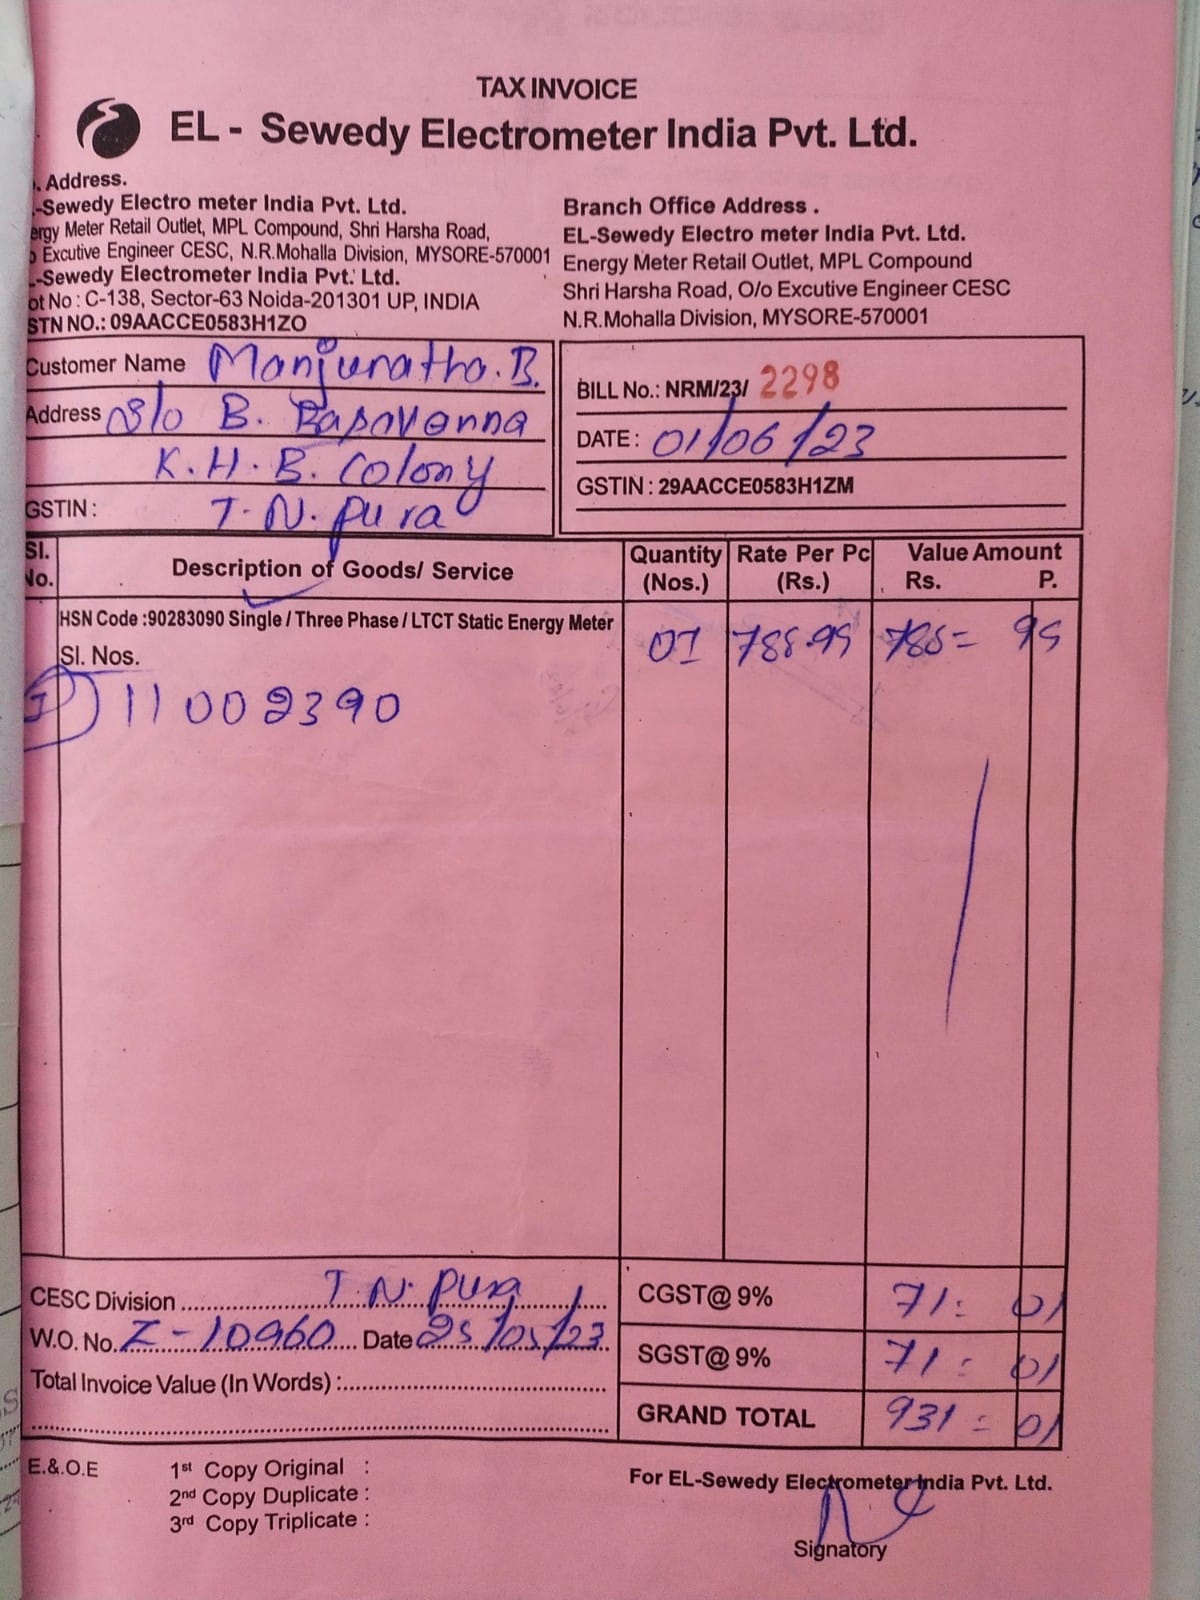 TAX INVOICE
EL - Sewedy Electrometer India Pvt. Ltd.
. Address.
-Sewedy Electro meter India Pvt. Ltd.
ergy Meter Retail Outlet, MPL Compound, Shri Harsha Road,
o Excutive Engineer CESC, N.R.Mohalla Division, MYSORE-570001
-Sewedy Electrometer India Pvt. Ltd.
ot No : C-138, Sector-63 Noida-201301 UP, INDIA
STN NO.: 09AACCE0583H1ZO
Branch Office Address .
EL-Sewedy Electro meter India Pvt. Ltd.
Energy Meter Retail Outlet, MPL Compound
Shri Harsha Road, O/o Excutive Engineer CESC
N.R.Mohalla Division, MYSORE-570001
Customer Name Manjunatha.B.
Address S/o B. Basavanna
K.H.B. Colony
GSTIN : T.N. Pura
BILL No.: NRM/23/ 2298
DATE : 01/06/23
GSTIN : 29AACCE0583H1ZM
Sl. No. Description of Goods/ Service Quantity (Nos.) Rate Per Pc (Rs.) Value Amount Rs. P.
HSN Code :90283090 Single / Three Phase / LTCT Static Energy Meter 01
Sl. Nos.
1) 11002390
CESC Division T.N. Pura
W.O. No. Z-10960 Date 25/05/23
Total Invoice Value (In Words) :
CGST@ 9% 71= 01
SGST@ 9% 71= 01
GRAND TOTAL 931= 01
E.&.O.E
1st Copy Original :
2nd Copy Duplicate :
3rd Copy Triplicate :
For EL-Sewedy Electrometer India Pvt. Ltd.
Signatory